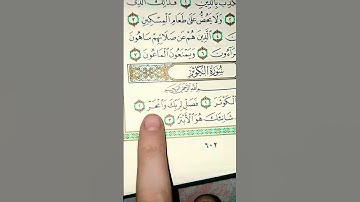 بِالدِّينِ ١ فَذَٰلِكَ الَّذِي
وَلَا يَحُضُّ عَلَىٰ طَعَامِ الْمِسْكِينِ ٣
٤ الَّذِينَ هُمْ عَن صَلَاتِهِمْ سَاهُونَ
يُرَاءُونَ ٦ وَيَمْنَعُونَ الْمَاعُونَ ٧
سُورَةُ الْكَوْثَرِ
بِسْمِ اللَّهِ الرَّحْمَٰنِ الرَّحِيمِ
الْكَوْثَرَ ١ فَصَلِّ لِرَبِّكَ وَانْحَرْ ٢
شَانِئَكَ هُوَ الْأَبْتَرُ ٣
٦٠٢